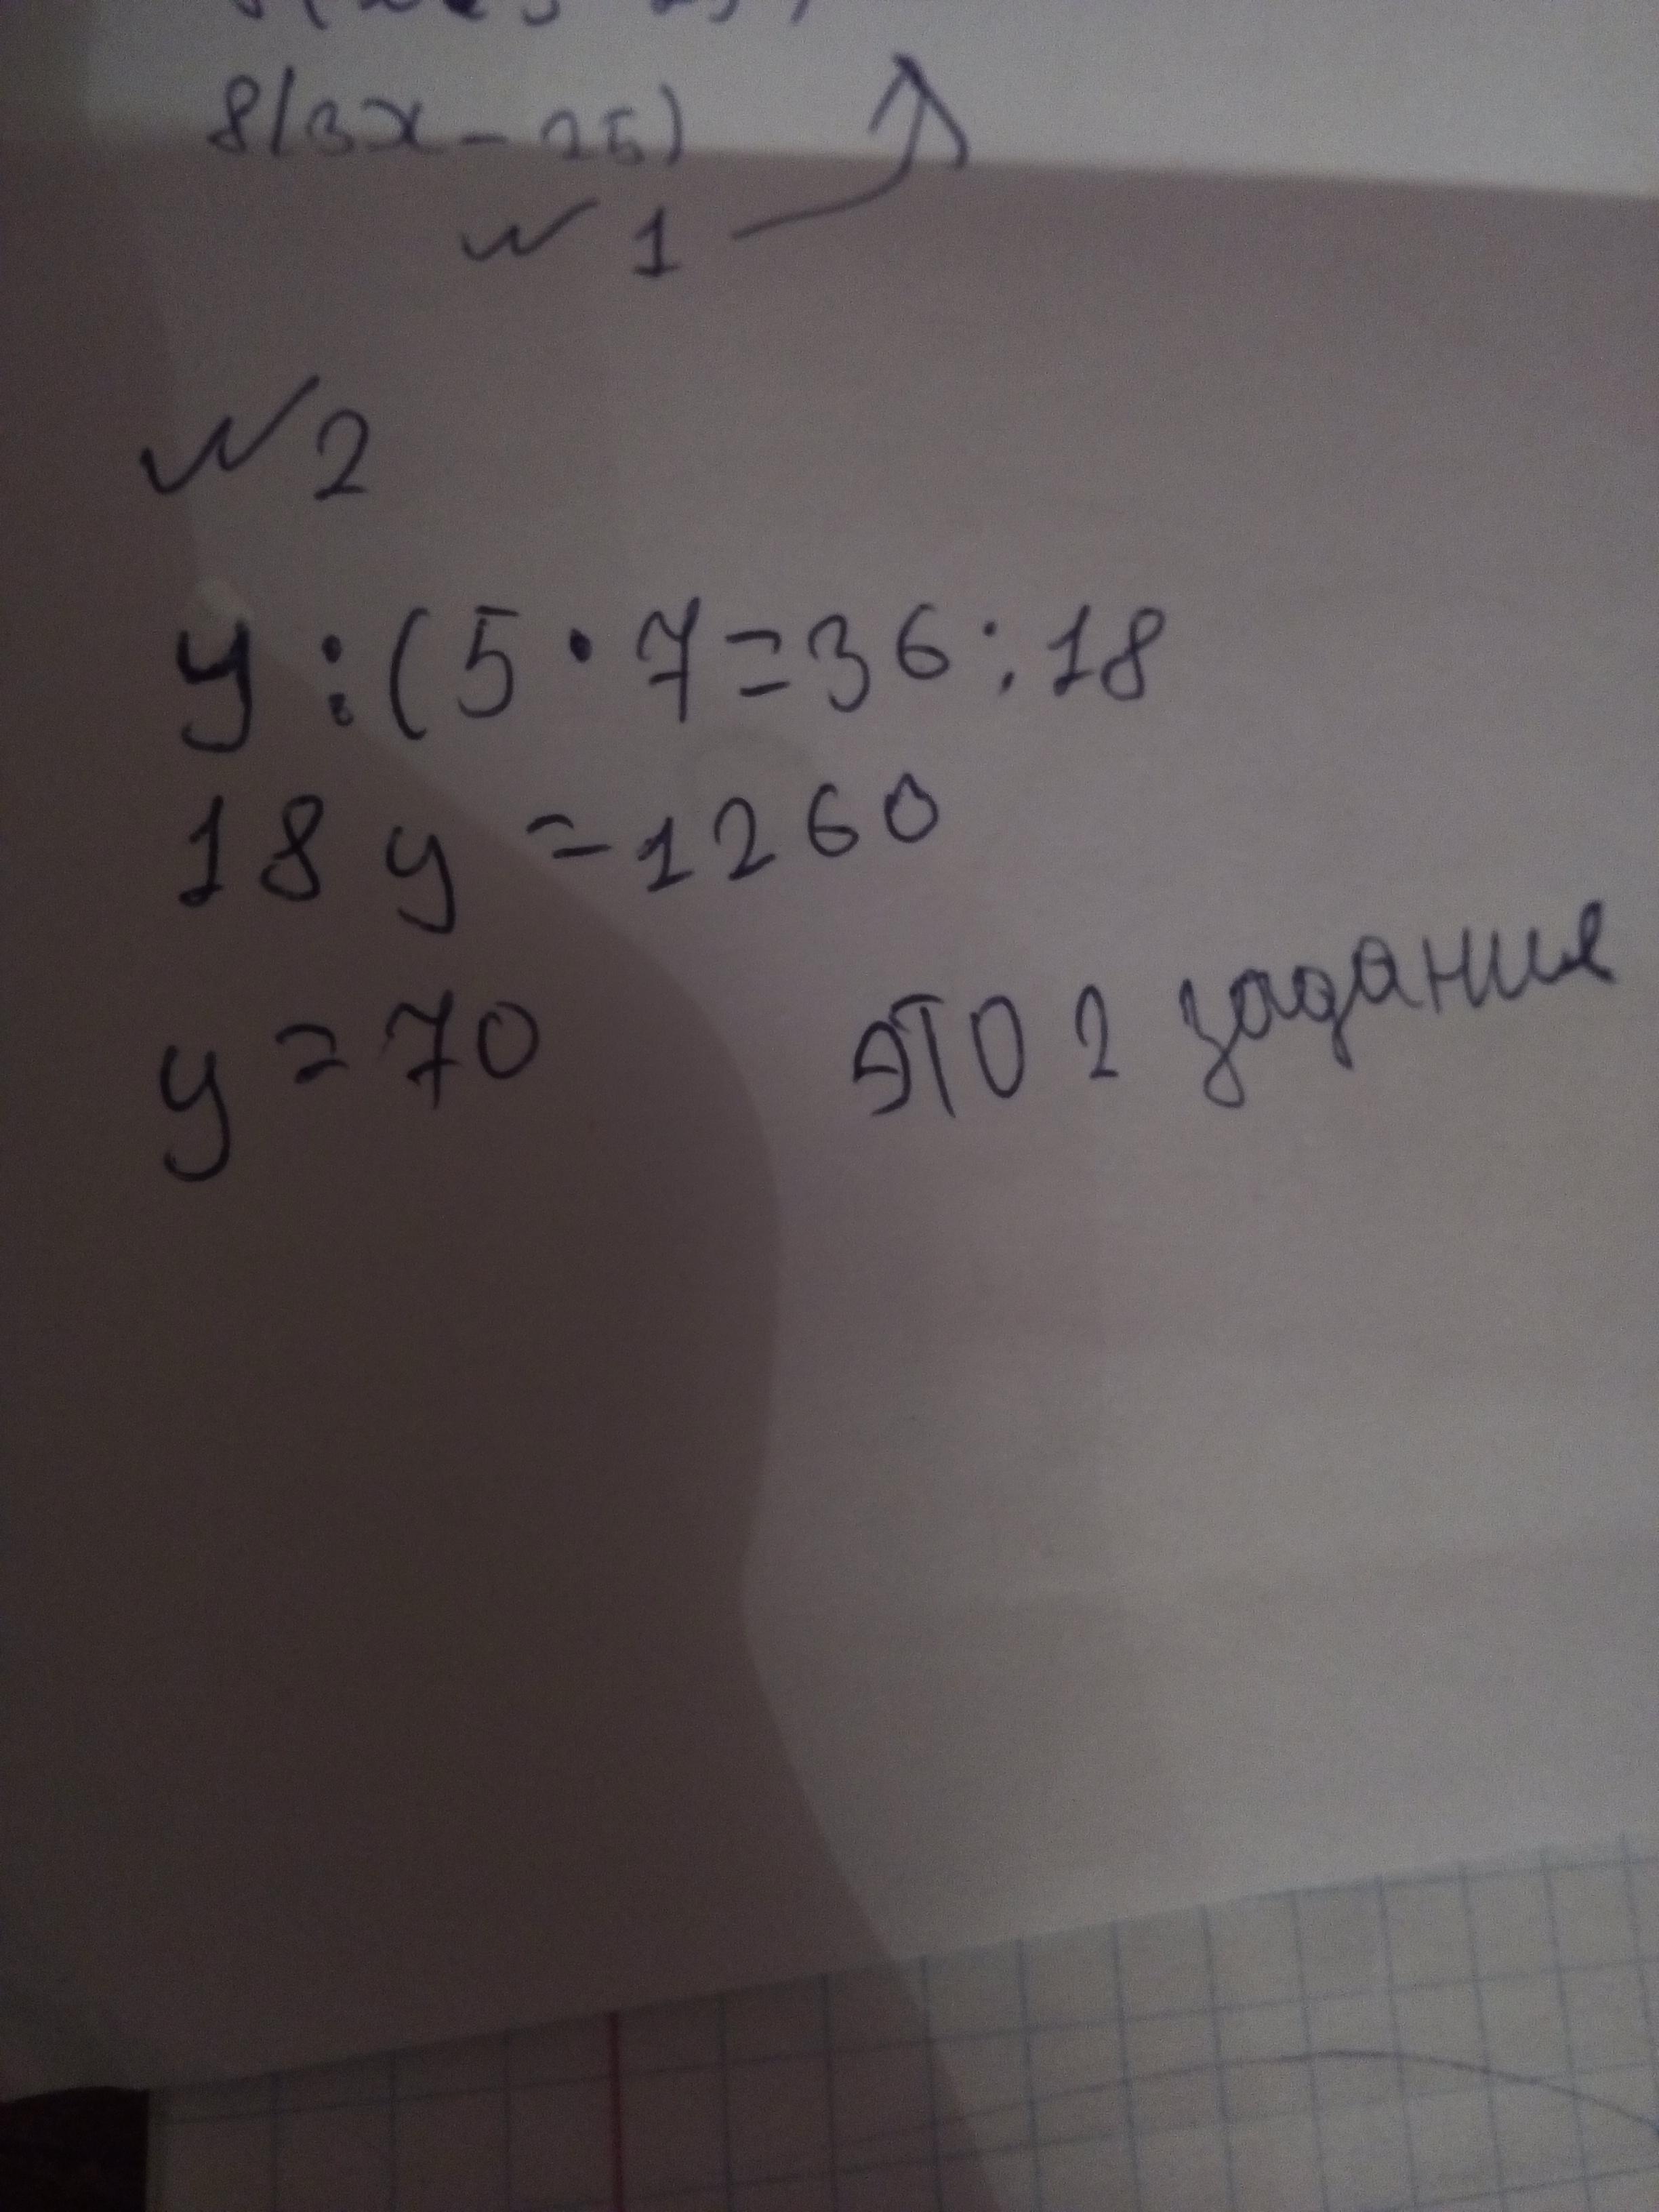 8(3x-25)
№1
№2
y:(5·7=36:18
18y=1260
y=70
это 2 задания